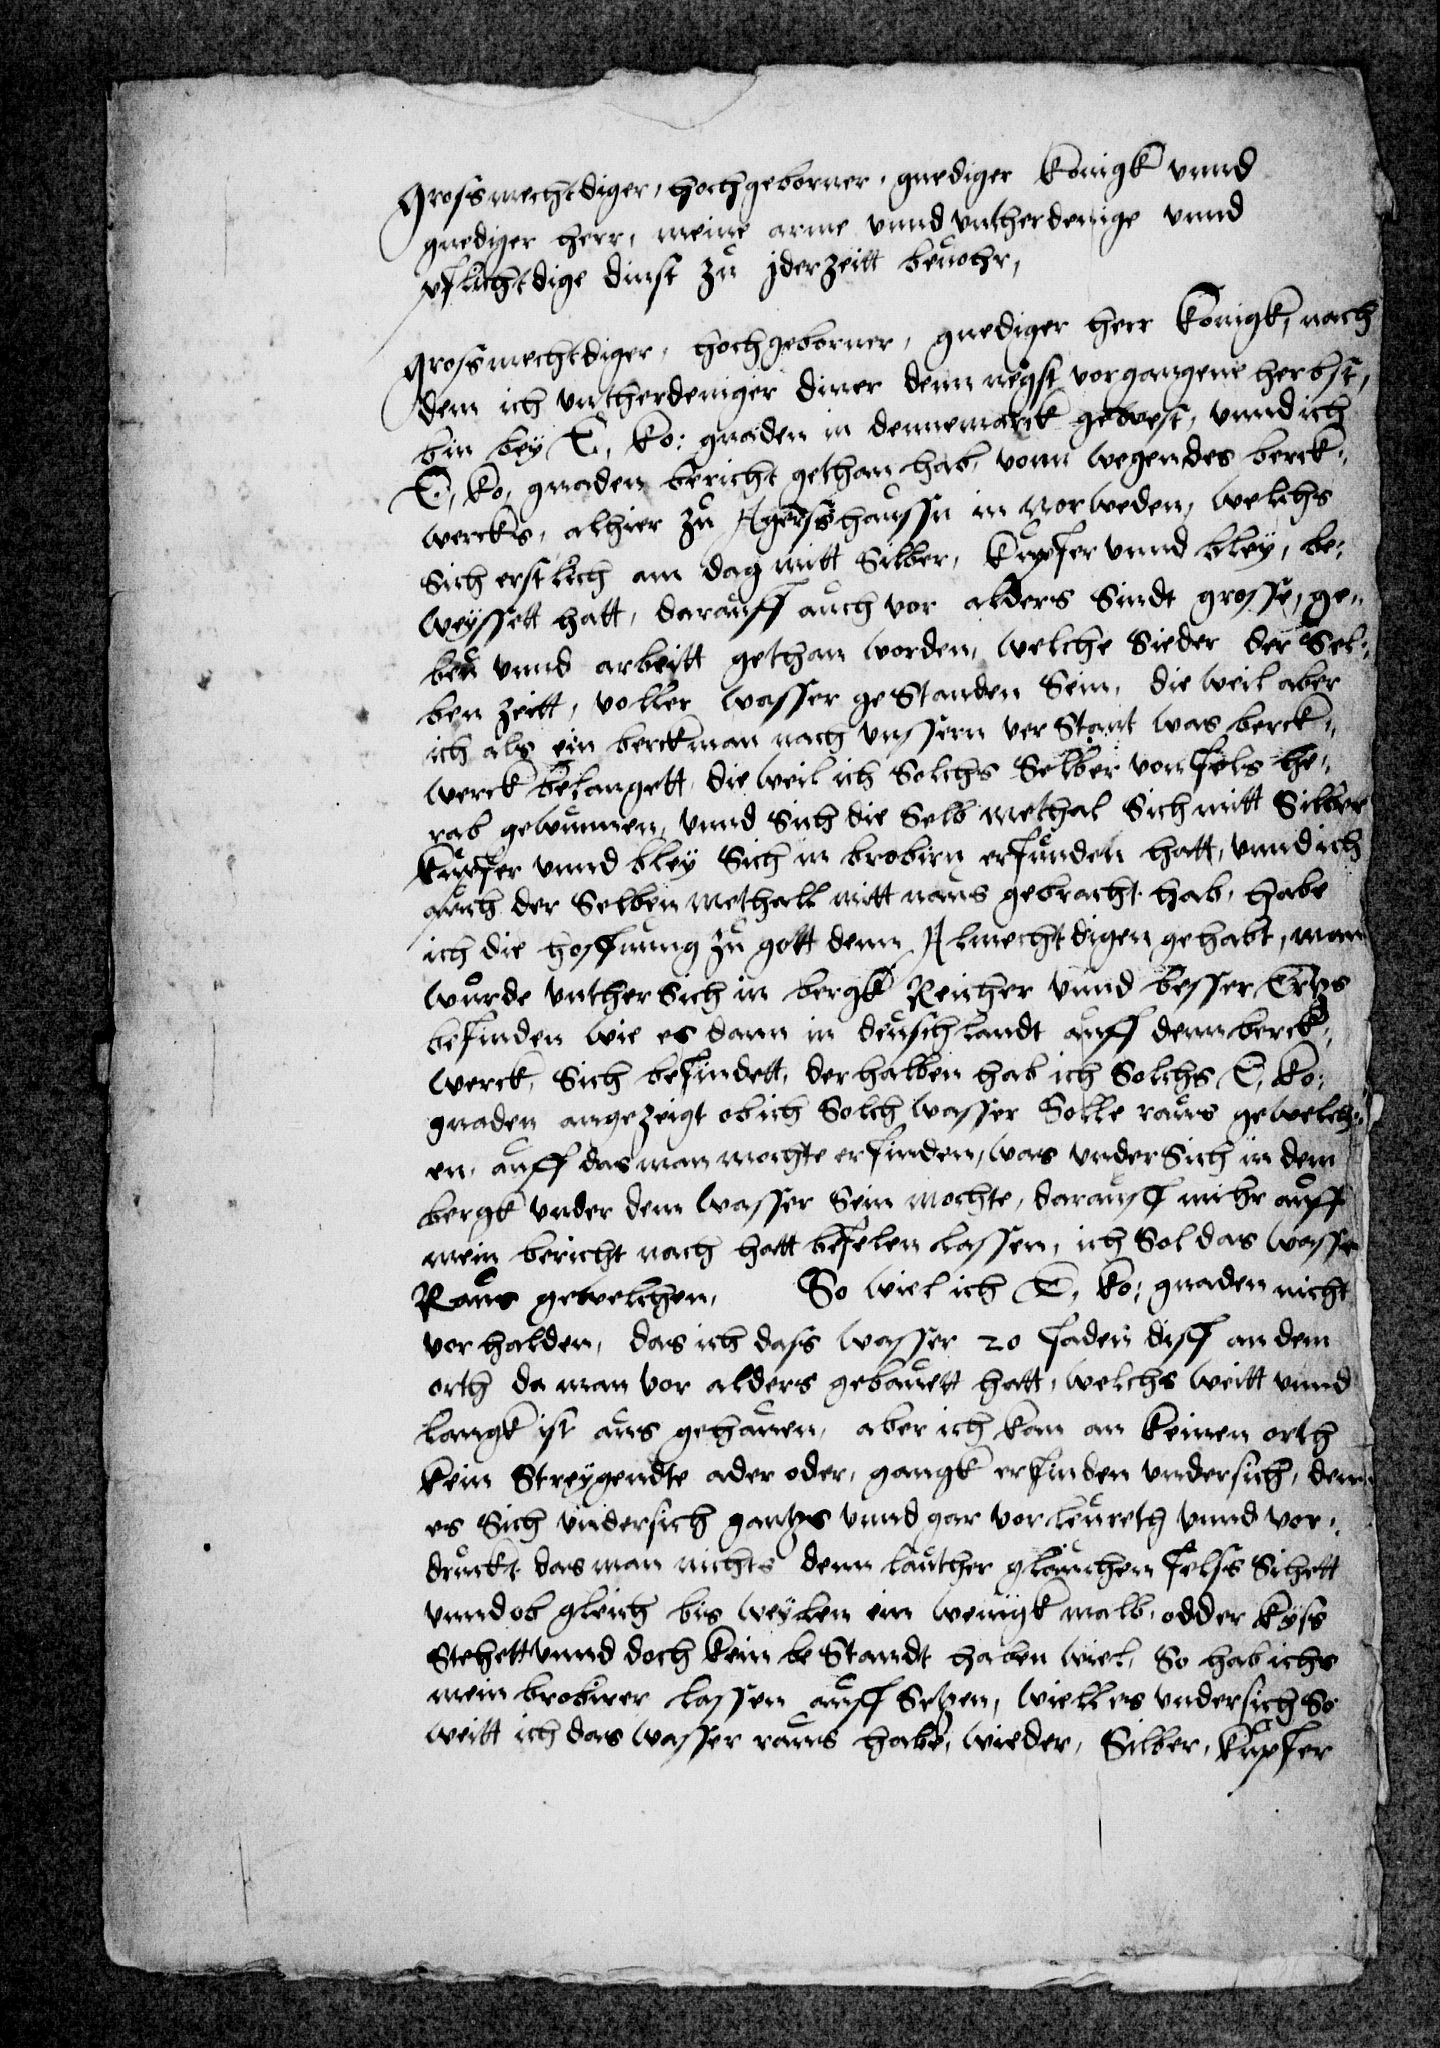 Grossmechtdiger, hochgeborner, gnediger Konigk vnnd
gnediger herr, meine arme vnnd vntherdenige vnnd
pflichtdige dinst zu jderzeitt beuohr,
Grossmechtdiger, hochgeborner, gnediger herr Konigk, nach
dem ich vntherdeniger diner denn negst vorgangene herbst,
bin bey E, ko: gnaden in dennemarck gewest, vnnd ich
E, ko, gnaden bericht gethan hab, vonn wegen des berck„
wercks, alhier zu Agerss haussn in Norweden, welchs
Sich erstlich am dag mitt Silber, Kupfer vnnd bley, be„
weyssett hatt, darauff auch vor alders Sindt grosse, ge„
beu vnnd arbeitt gethan worden, welche Sieder der Sel„
ben zeitt, voller wasser ge Standen Sein, die weil aber
ich als ein berckman nach vnssern ver Stant was berck„
werck belangett, die weil ich Solchs Selber von fels he„
rab gewunnen, vnnd Sich die Selb methal Sich mitt Silber
Kupfer vnnd bley Sich in brobirn erfunden hatt, vnnd ich
auch der Selben methall mitt naus gebracht hab, habe
ich die hoffnung zu gott denn Almechtdigen gehabt, man
wurde vnther Sich in bergk Reicher vnnd besser Ertzs
befinden wie es dann in deuschlandt auff denn berck„
werck, Sich befindett, derhalben hab ich Solchs E, ko:
gnaden angezeigt ob ich Solch wasser Solle raus gewelch„
en, auff das man mochte erfinden, was vnder Sich in dem
bergk vnder dem wasser Sein mochte, darauff mihr auff
mein bericht nach hatt befelen lassen, ich Sol das wasser
Raus gewelchen, So wiel ich E, ko: gnaden nicht
vorhalden, das ich dass wasser 20 faden diff an dem
orth da man vor alders gebauett hatt, welchs weitt vnnd
langk ist aus gehauen, aber ich kan an keinen orth
kein Streygendte ader oder, gangk erfinden vndersich, denn
es Sich vndersich gantzs vnnd gar vorleureth vnnd vor„
druckt das man nichts denn lauther felss Sihett
vnnd ob gleich bis weylen ein wenigk malb, odder kyss
Stehett vnnd doch kein be Standt haben wiel, So hab ichs
mein brobirer lassen auff Setzen, wiell es vndersich So
weitt ich das wasser raus habe, wieder, Silber, Kupfer